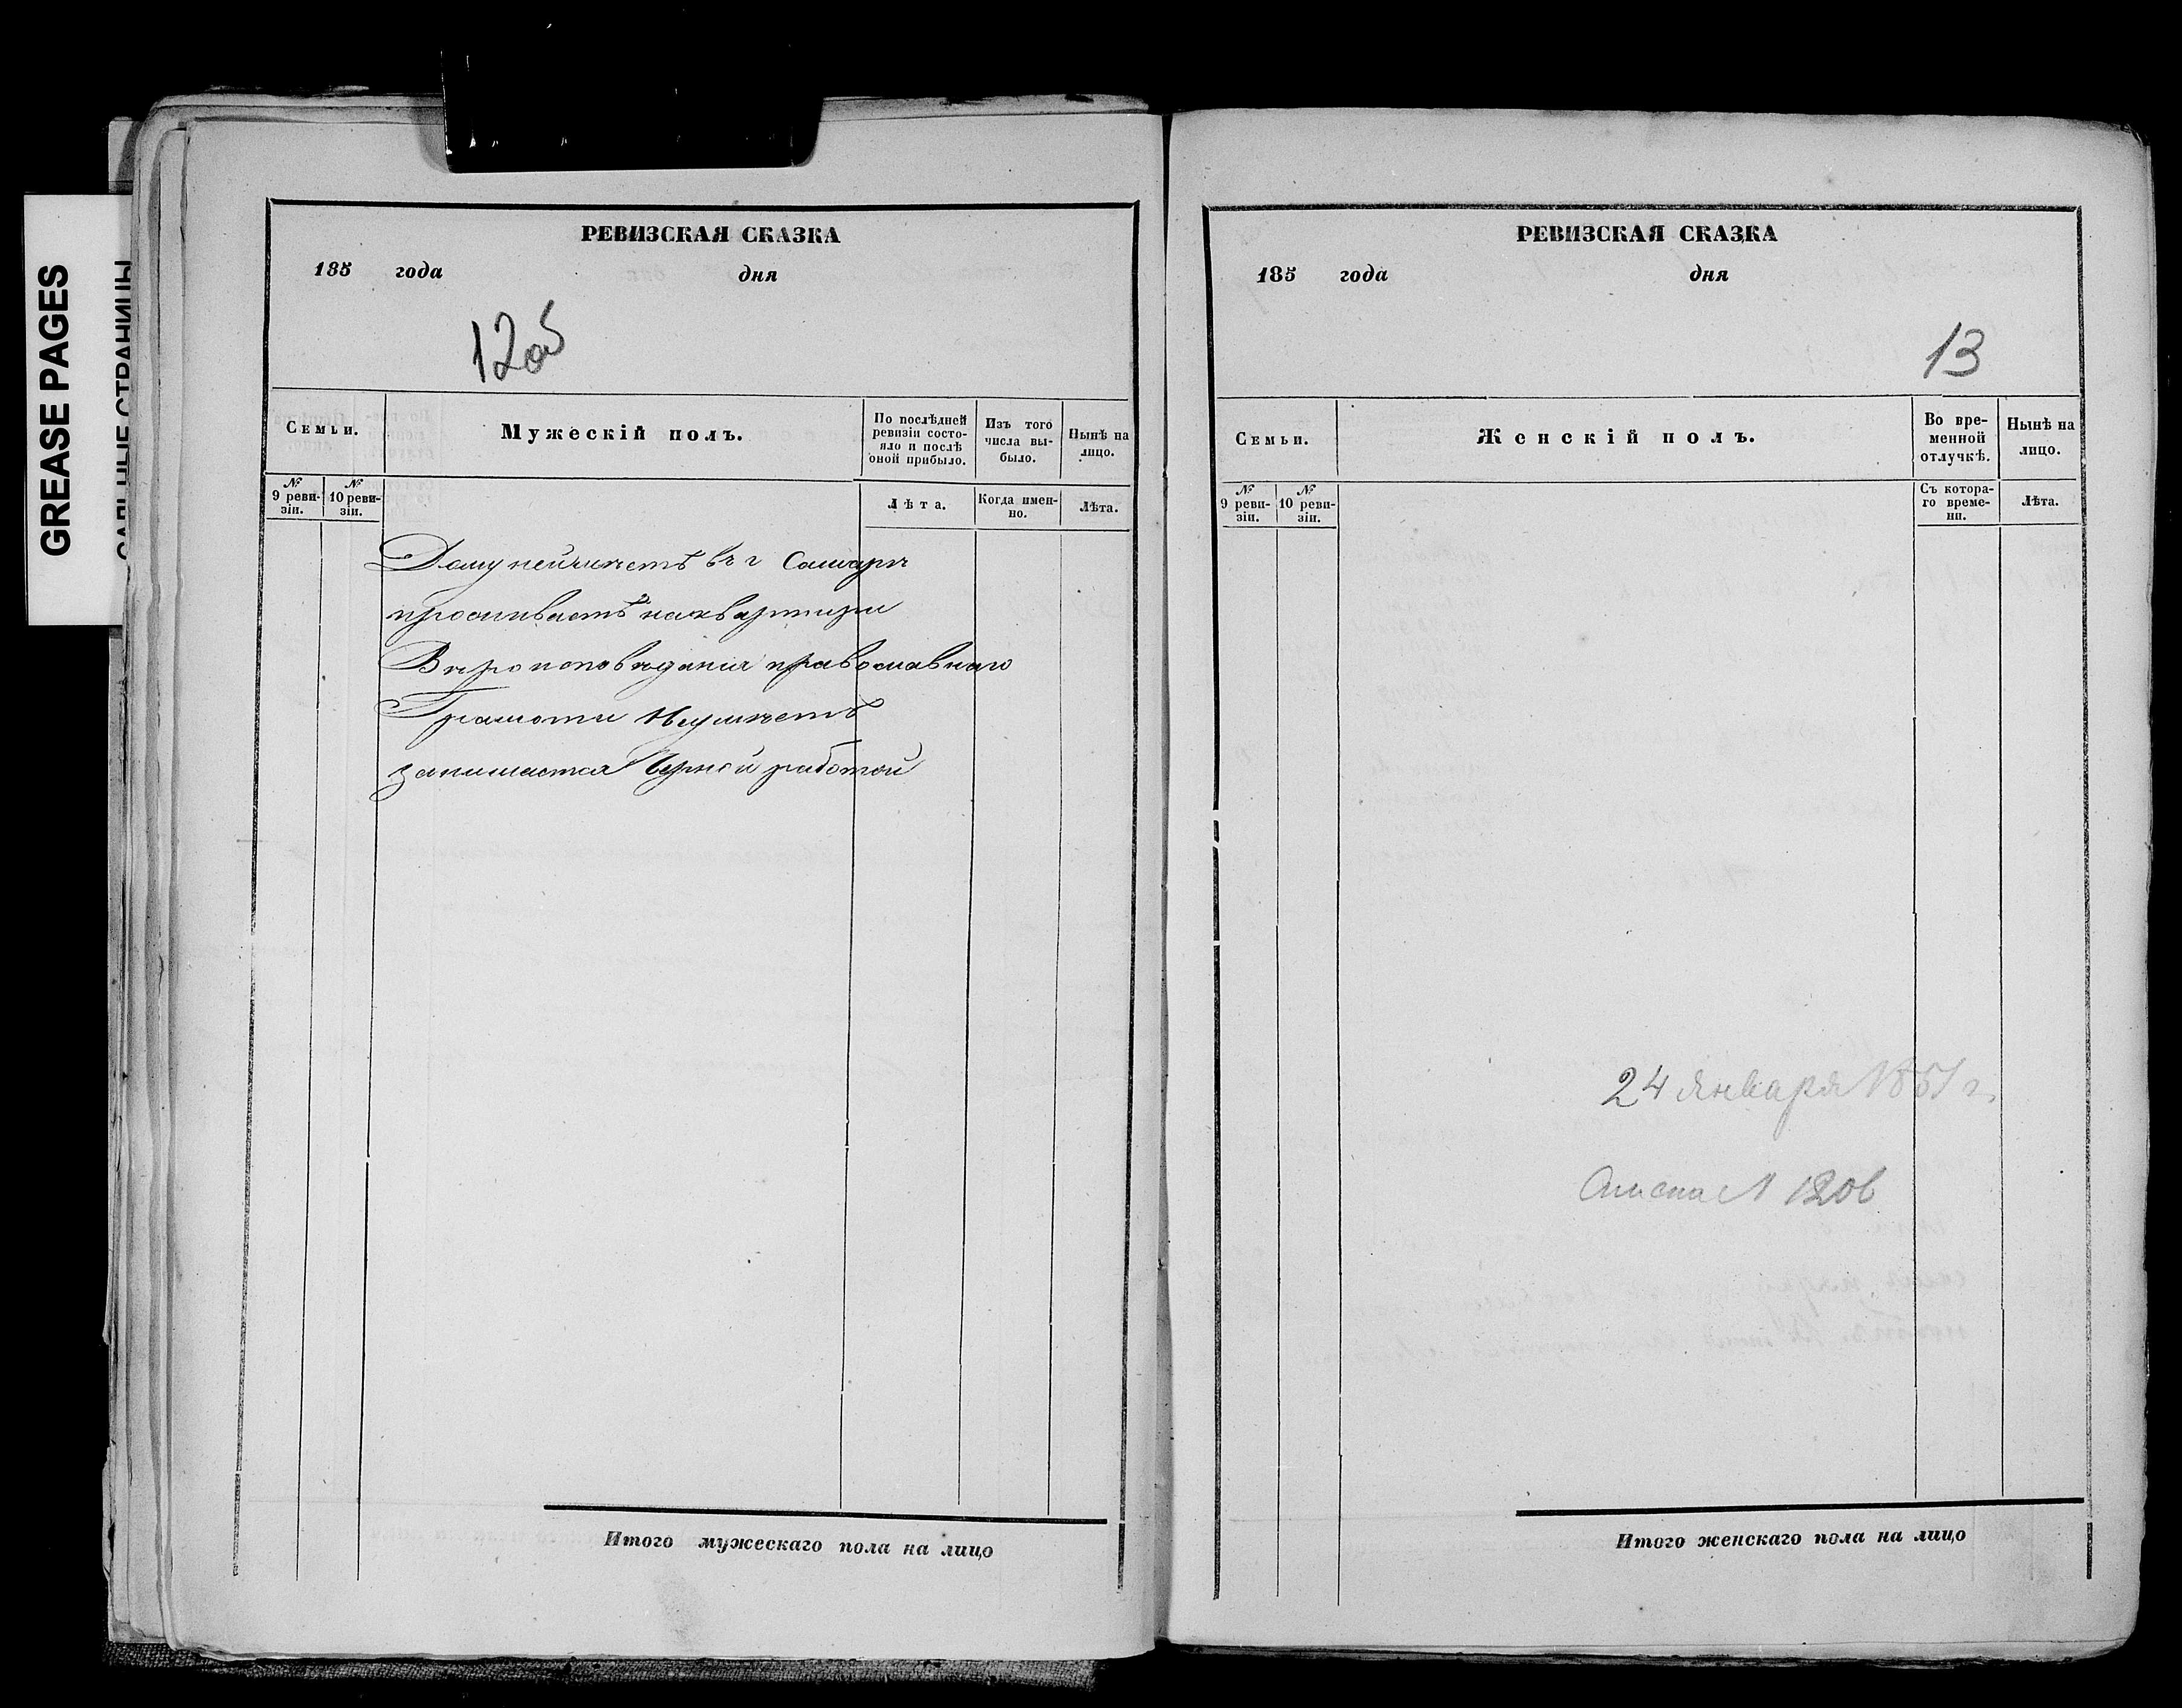 GREASE PAGES
САЛЬНЫЕ СТРАНИЦЫ
РЕВИЗСКАЯ СКАЗКА
185 года дня
12об
Семьи.
Мужескій полъ.
По послѣдней ревизіи состояло и послѣ оной прибыло.
Изъ того числа выбыло.
Нынѣ на лицо.
№ 9 ревизіи.
№ 10 ревизіи.
Лѣта.
Когда именно.
Лѣта.
Дому неимѣетъ въ г Самарѣ
проживаетъ наквартири
Вѣроисповѣдания православнаго
Грамоти Неумѣетъ
занимается Черной работой
Итого мужескаго пола на лицо
РЕВИЗСКАЯ СКАЗКА
185 года дня
13
Семьи.
Женскій полъ.
Во временной отлучкѣ.
Нынѣ на лицо.
№ 9 ревизіи.
№ 10 ревизіи.
Съ котораго времени.
Лѣта.
24 января 1851 г.
Итого женскаго пола на лицо